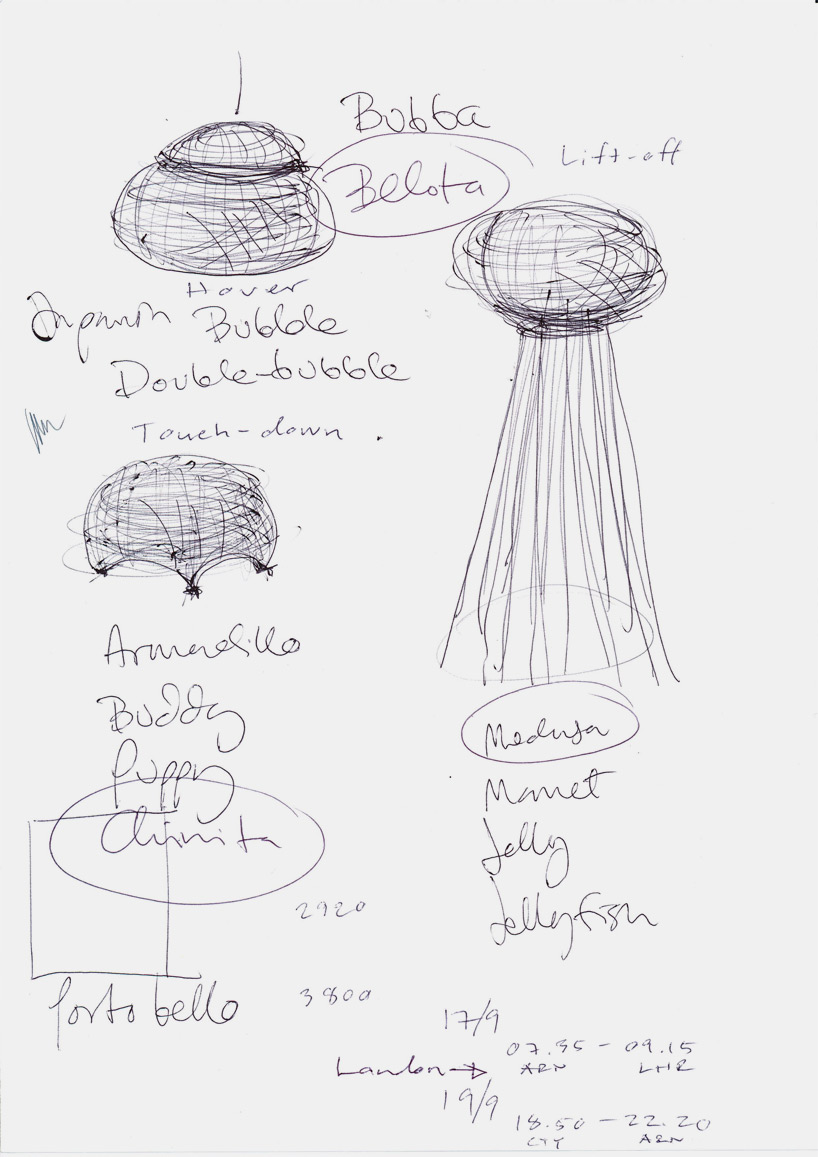 Bubba
Belota
Lift-off
Hover
Bubble
Double-bubble
Touch-down
Armadillo
Buddy
Puppy
Chinita
Portobello
2920
3800
Medusa
Manet
Jelly
Jellyfish
17/9
07.35 – 09.15
London → ARN LHR
19/9
18.50 – 22.20
CTY ARN